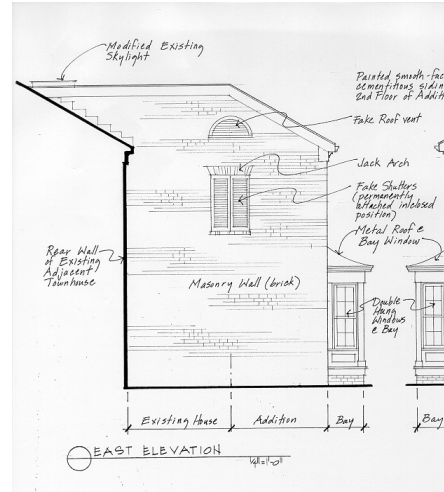 Modified Existing
Skylight
Painted smooth-fac
cementitious sidin
2nd Floor of Additi
Fake Roof vent
Jack Arch
Fake Shutters
(permanently
attached inclosed
position)
Metal Roof @
Bay Window
Rear Wall
of Existing
Adjacent
Townhouse
Masonry Wall (brick)
Double
Hung
Windows
@ Bay
Existing House
Addition
Bay
Bay
EAST ELEVATION
1/4"=1'-0"